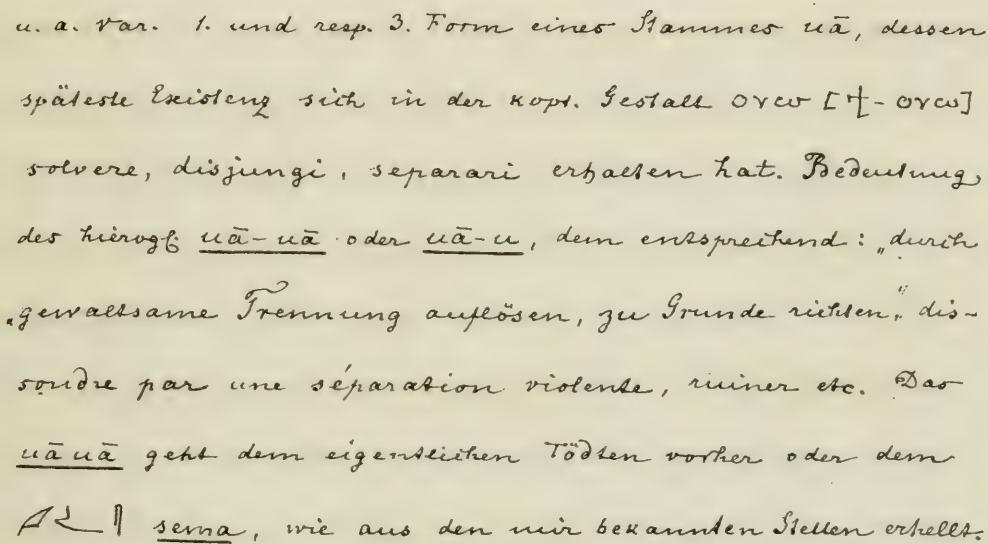 u. a. var. 1. und resp. 3. Form eines Stammes uā, dessen
späteste Existenz sich in der kopt. Gestalt ⲟⲩⲱ [ϯ-ⲟⲩⲱ]
solvere, disjungi, separari erhalten hat. Bedeutung
des hierogl. uā-uā oder uā-u, dem entsprechend: „durch
„gewaltsame Trennung auflösen, zu Grunde richten," dis-
soudre par une séparation violente, ruiner etc. Das
uāuā geht dem eigentlichen Tödten vorher oder dem
sema, wie aus den mir bekannten Stellen erhellt.